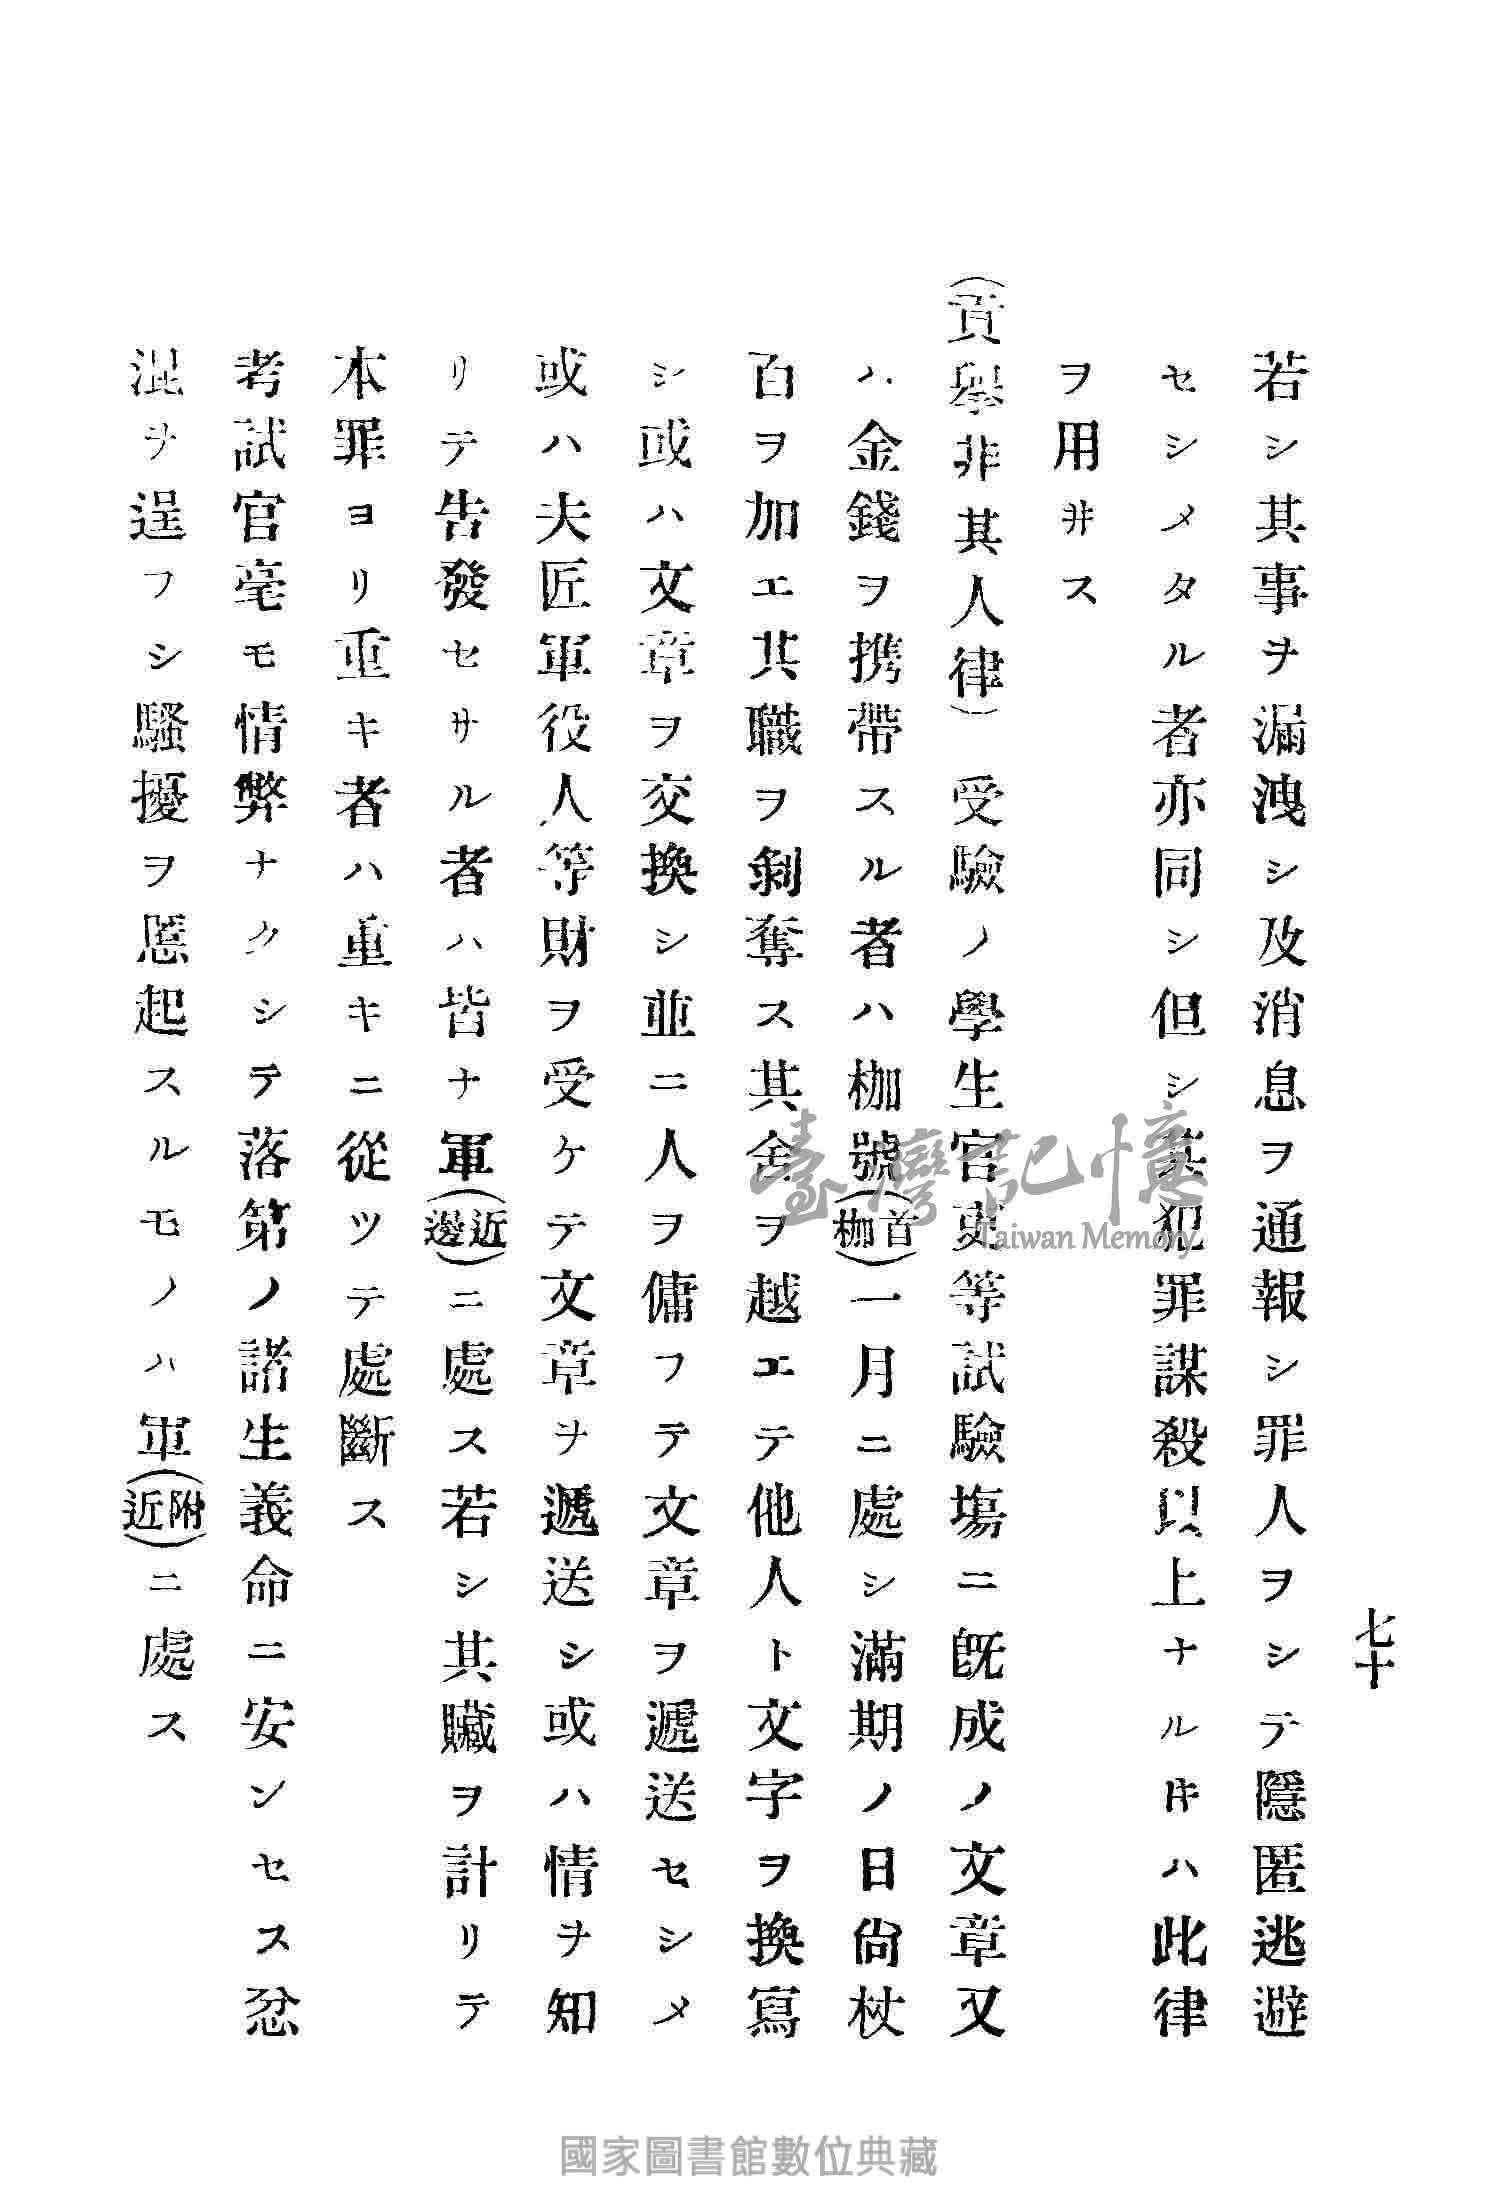 七十
若シ其事ヲ漏洩シ及消息ヲ通報シ罪人ヲシテ隱匿逃避
セシメタル者亦同シ但シ其犯罪謀殺以上ナルキハ此律
ヲ用ヰス
(貢擧非其人律)受驗ノ學生官吏等試驗塲ニ旣成ノ文章又
ハ金錢ヲ携帶スル者ハ枷號(首枷)一月ニ處シ滿期ノ日尙杖
百ヲ加エ其職ヲ剝奪ス其舍ヲ越エテ他人ト文字ヲ換寫
シ或ハ文章ヲ交換シ並ニ人ヲ傭フテ文章ヲ遞送セシメ
或ハ夫匠軍役人等財ヲ受ケテ文章ヲ遞送シ或ハ情ヲ知
リテ告發セサル者ハ皆ナ軍(近邊)ニ處ス若シ其贓ヲ計リテ
本罪ヨリ重キ者ハ重キニ從ツテ處斷ス
考試官毫モ情弊ナクシテ落第ノ諸生義命ニ安ンセス忿
混ヲ逞フシ騷擾ヲ慝起スルモノハ軍(附近)ニ處ス
臺灣記憶
Taiwan Memory
國家圖書館數位典藏